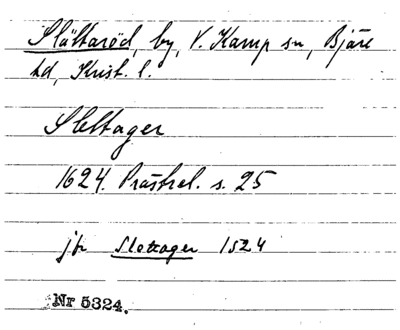 Slättaröd, by, V. Karup sn, Bjäre
hd, Krist. l.
Slettager
1624. Prästrel. s. 25
jfr Slettager 1524
Nr 5324.